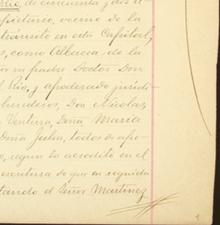 Rio, de cincuenta y dos a
pietario, vecino de la
tránsito en esta Capital,
s, como Albacea de la
or su padre Doctor Don
l Rio, y apoderado jurídi
herederos, Don Nicolas,
Ventura, Doña Maria
Doña Julia, todos de ape
o, segun lo acredita en el
escritura de que en seguida
tando el Señor Martinez